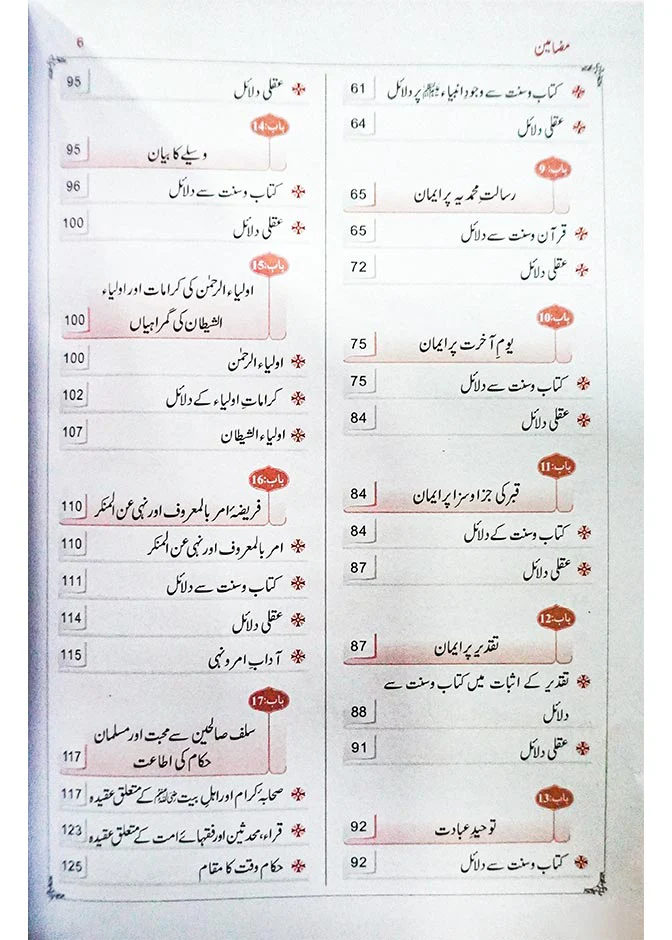 مضامین
6
کتاب و سنت سے وجودِ انبیاء ﷺ پر دلائل 61
عقلی دلائل 64
باب:9
رسالتِ محمدیہ پر ایمان 65
قرآن و سنت سے دلائل 65
عقلی دلائل 72
باب:10
یومِ آخرت پر ایمان 75
کتاب و سنت سے دلائل 75
عقلی دلائل 84
باب:11
قبر کی جزا و سزا پر ایمان 84
کتاب و سنت کے دلائل 84
عقلی دلائل 87
باب:12
تقدیر پر ایمان 87
تقدیر کے اثبات میں کتاب و سنت سے
دلائل 88
عقلی دلائل 91
باب:13
توحیدِ عبادت 92
کتاب و سنت سے دلائل 92
عقلی دلائل 95
باب:14
وسیلے کا بیان 95
کتاب و سنت سے دلائل 96
عقلی دلائل 100
باب:15
اولیاء الرحمٰن کی کرامات اور اولیاء
الشیطان کی گمراہیاں 100
اولیاء الرحمٰن 100
کراماتِ اولیاء کے دلائل 102
اولیاء الشیطان 107
باب:16
فریضۂ امر بالمعروف اور نہی عن المنکر 110
امر بالمعروف اور نہی عن المنکر 110
کتاب و سنت سے دلائل 111
عقلی دلائل 114
آدابِ امر و نہی 115
باب:17
سلف صالحین سے محبت اور مسلمان
حکام کی اطاعت 117
صحابۂ کرام اور اہلِ بیت کے متعلق عقیدہ 117
قراء، محدثین اور فقہائے امت کے متعلق عقیدہ 123
حکامِ وقت کا مقام 125